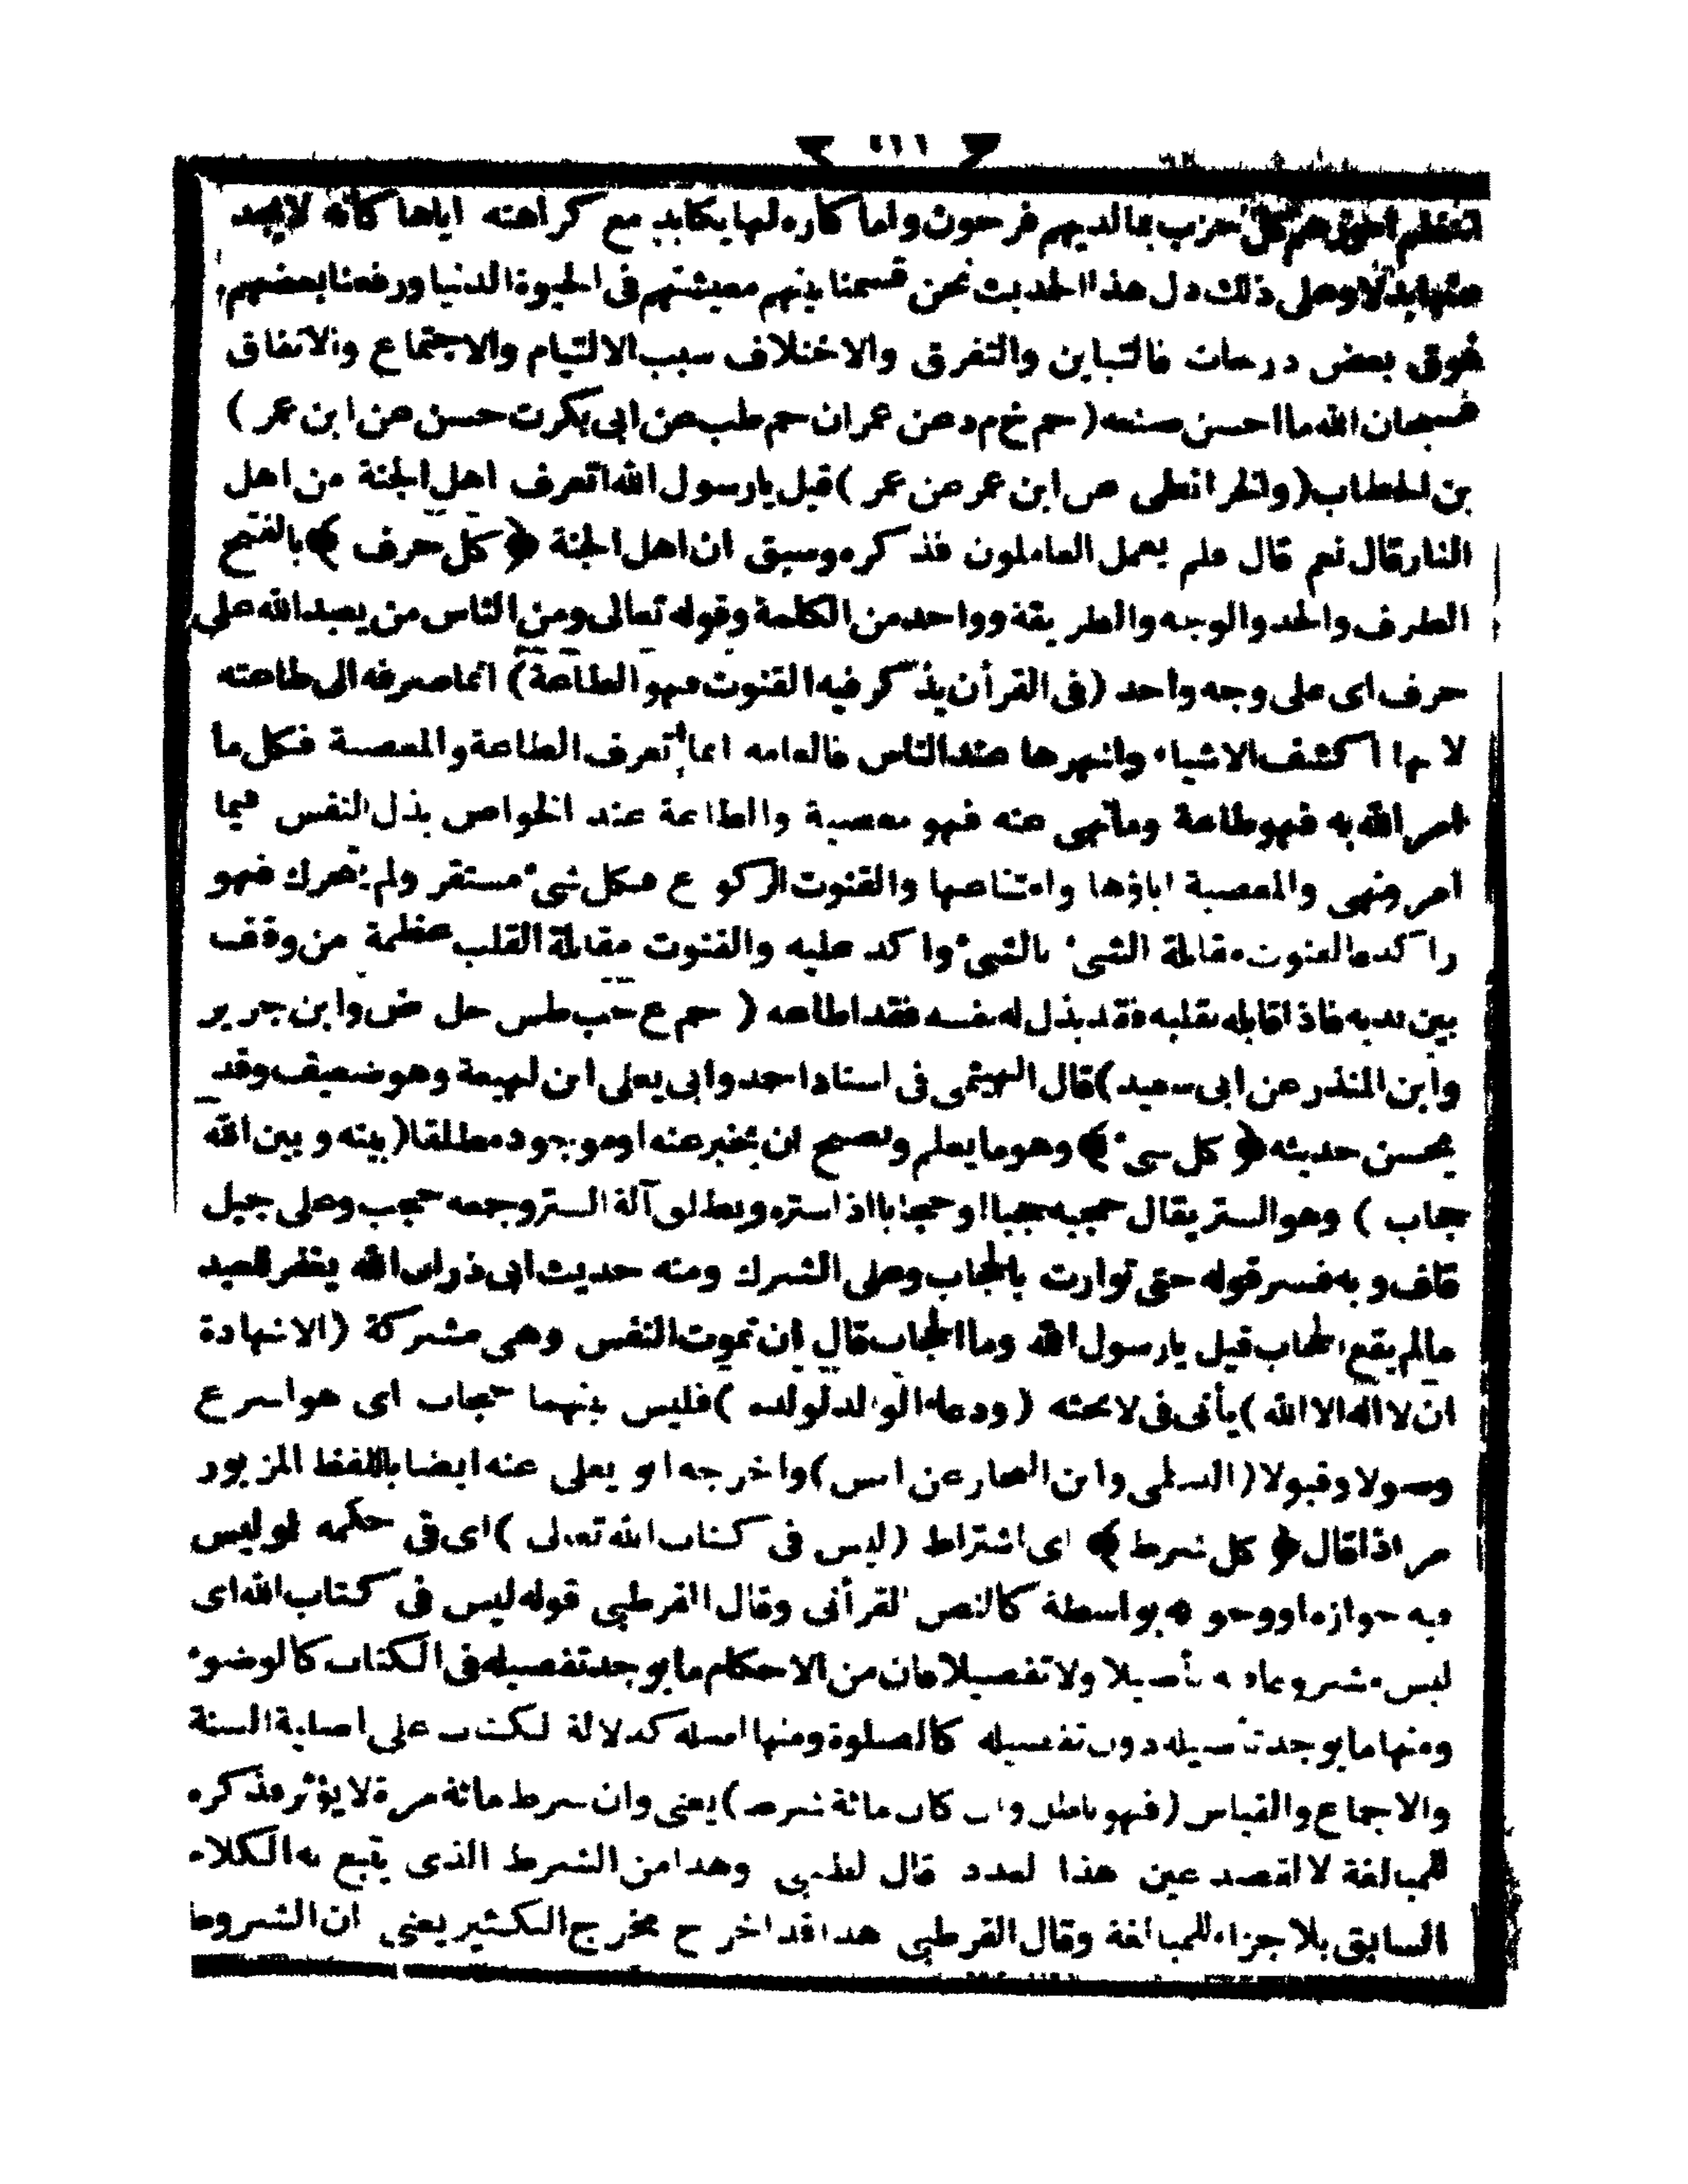 كل حزب بما لديهم فرحون واما كاره لها يكابد مع كراهته اياها كانه لا يجد
عنها بدلا وعلى ذلك دل هذا الحديث نحن قسمنا بينهم معيشتهم فى الحيوة الدنيا ورفعنا بعضهم
فوق بعض درجات فالتباين والتفرق والاختلاف سبب الالتيام والاجتماع والاتفاق
فسبحان الله ما احسن صنعه (حم خ م د عن عمران حم طب عن ابى بكرت حسن عن ابن عمر)
بن الخطاب (والخرائطى ص ابن عمر عن عمر) قيل يا رسول الله اتعرف اهل الجنة من اهل
النار قال نعم قال فلم يعمل العاملون فذكره وسبق ان اهل الجنة ﴿ كل حرف ﴾ بالفتح
الطرف والحد والوجه والطريقة وواحد من الكلمة وقوله تعالى ومن الناس من يعبد الله على
حرف اى على وجه واحد (فى القرأن يذكر فيه القنوت فهو الطاعة) انما صرفه الى طاعته
لانها اكشف الاشياء واشهرها عند الناس فالعامه انما تعرف الطاعة والمعصية فكل ما
امر الله به فهو طاعة وما نهى عنه فهو معصية والطاعة عند الخواص بذل النفس فيما
امر ونهى والمعصية اباؤها وامتناعها والقنوت الركوع فكل شئ مستقر ولم يتحرك فهو
راكد فالقنوت مقابلة الشئ بالشئ واكد عليه والقنوت مقابلة القلب عظمة من وقف
بين يديه فاذا قابله بقلبه فقد بذل له نفسه فقد اطاعه (حم ع حب طس حل ض وابن جرير
وابن المنذر عن ابى سعيد) قال الهيثمى فى اسناد احمد وابى يعلى ابن لهيعة وهو ضعيف وقد
يحسن حديثه ﴿ كل شئ ﴾ وهو ما يعلم ويصح ان يخبر عنه او موجود مطلقا (بينه وبين الله
حجاب) وهو الستر يقال حجبه حجبا او حجابا اذا ستره ويطلق آلة الستر وجمعه حجب وعلى جبل
قاف وبه فسر قوله حتى توارت بالحجاب وعلى الشرك ومنه حديث ابى ذر ان الله يغفر للعبد
مالم يقع الحجاب قيل يا رسول الله وما الحجاب قال ان تموت النفس وهى مشركة (الا شهادة
ان لا اله الا الله) يأتى فى لا بحثه (ودعاء الوالد لولده) فليس بينهما حجاب اى هو اسرع
وصولا وقبولا (السلمى وابن النجار عن انس) واخرجه ابو يعلى عنه ايضا باللفظ المزبور
مر اذا قال ﴿ كل شرط ﴾ اى اشتراط (ليس فى كتاب الله تعالى) اى فى حكمه او ليس
فيه جوازه او وجوبه بواسطة كالنص القرأنى وقال القرطبى قوله ليس فى كتاب الله اى
ليس مشروعا فيه تأصيلا ولا تفصيلا فان من الاحكام ما يوجد تفصيله فى الكتاب كالوضوء
ومنها ما يوجد تأصيله دون تفصيله كالصلوة ومنها اصله كدلالة الكتاب على اصلية السنة
والاجماع والقياس (فهو باطل وان كان مائة شرط) يعنى وان شرط مائة مرة لا يؤثر فذكره
للمبالغة لا لقصد عين هذا العدد قال الطيبى وهذا من الشرط الذى يتبع به الكلام
السابق بلا جزاء للمبالغة وقال القرطبى هذا قد اخرج مخرج التكثير يعنى ان الشروط